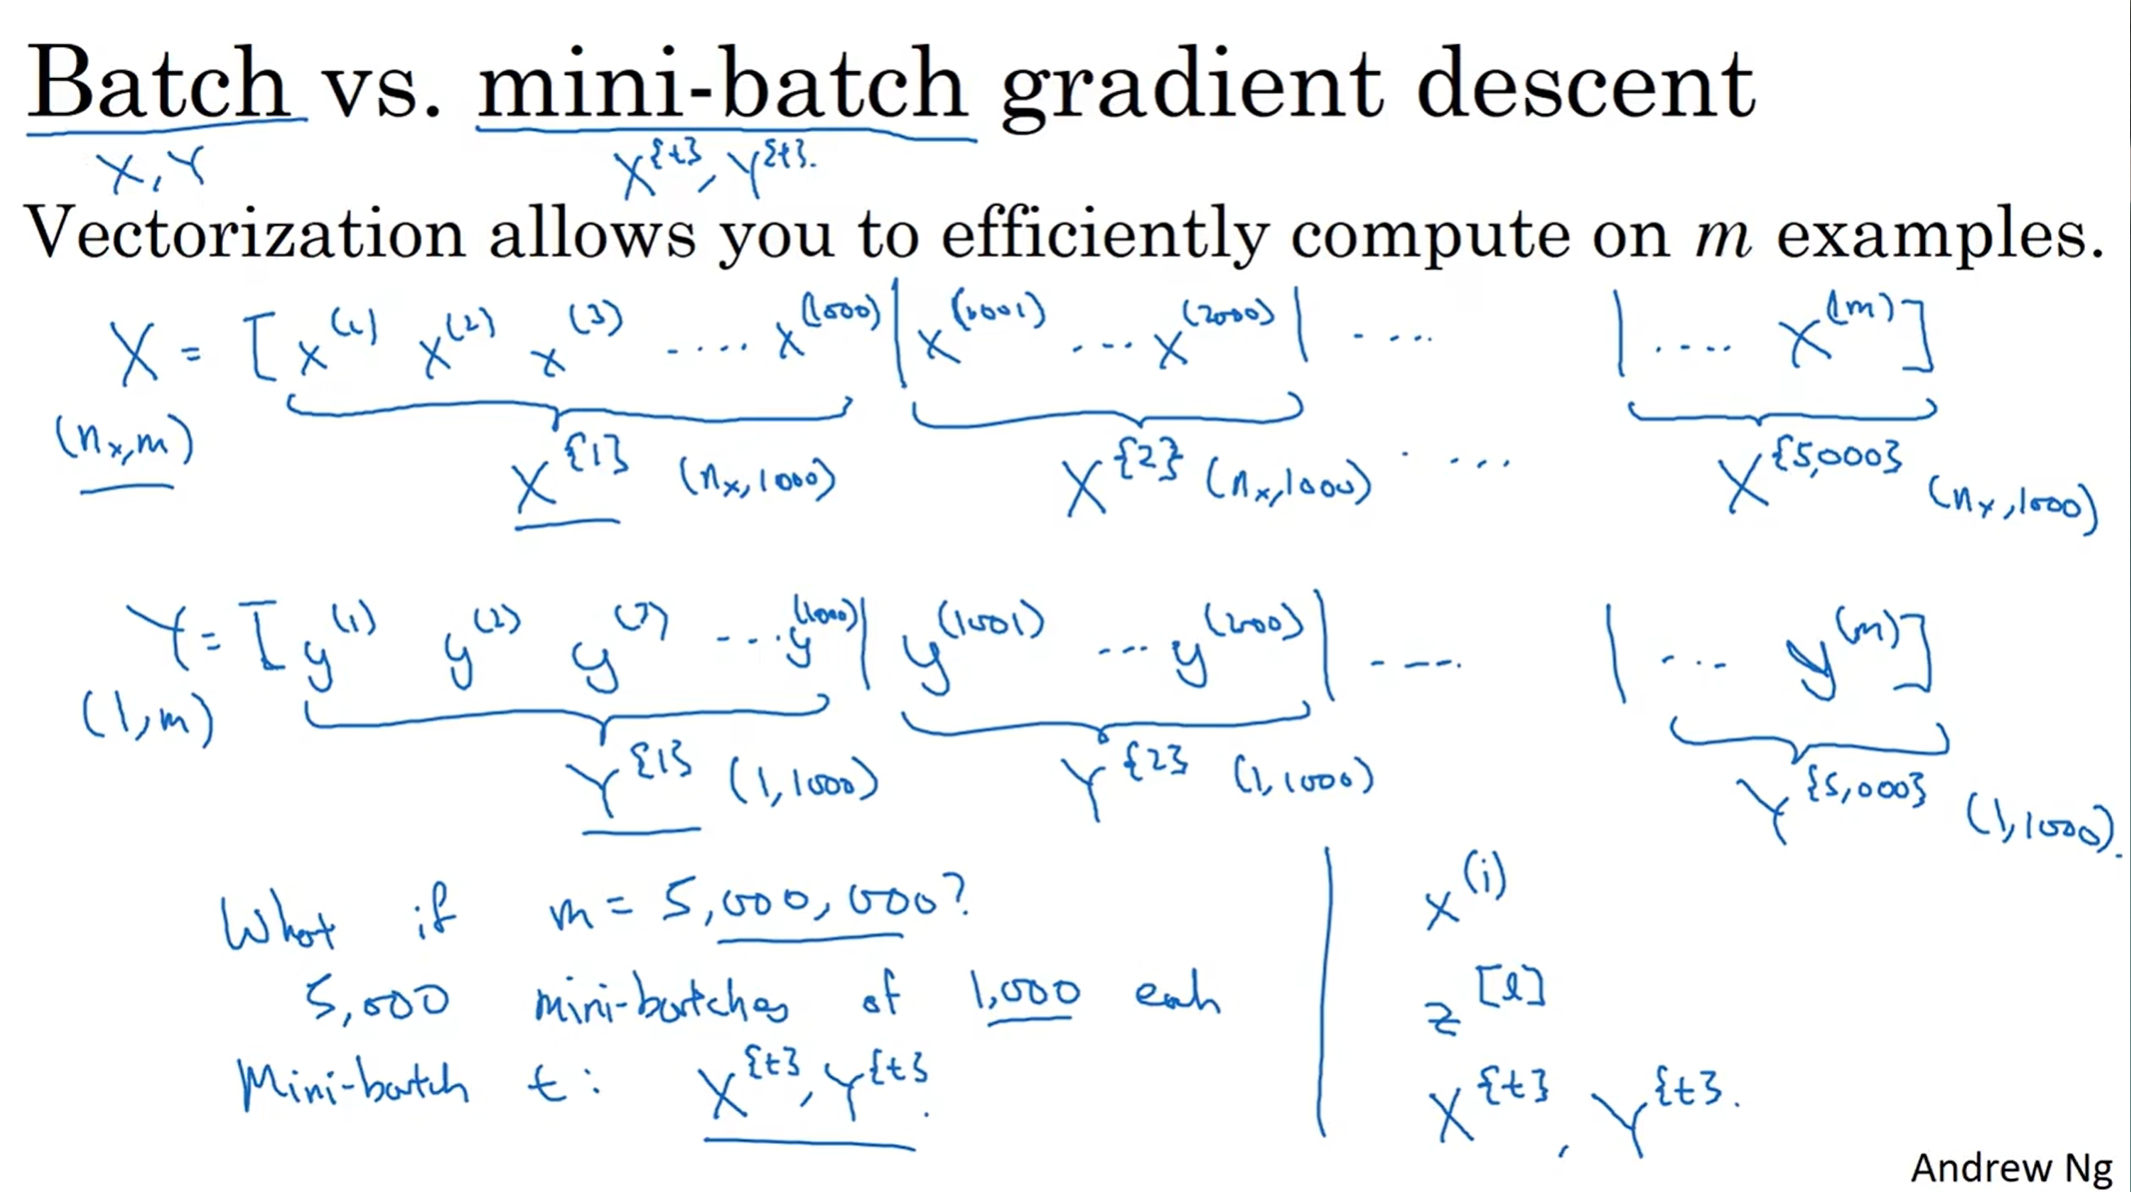 Batch vs. mini-batch gradient descent
X, Y X^{t}, Y^{t}.
Vectorization allows you to efficiently compute on m examples.
X = [ x^(1) x^(2) x^(3) .... x^(1000) | x^(1001) ... x^(2000) | .... | .... x^(m) ]
(n_x, m) X^{1} (n_x, 1000) X^{2} (n_x, 1000) .... X^{5,000} (n_x, 1000)
Y = [ y^(1) y^(2) y^(3) ... y^(1000) | y^(1001) ... y^(2000) | .... | ... y^(m) ]
(1, m) Y^{1} (1, 1000) Y^{2} (1, 1000) Y^{5,000} (1, 1000).
What if m = 5,000,000?
5,000 mini-batches of 1,000 each
Mini-batch t: X^{t}, Y^{t}.
x^(i)
z^[l]
X^{t}, Y^{t}.
Andrew Ng